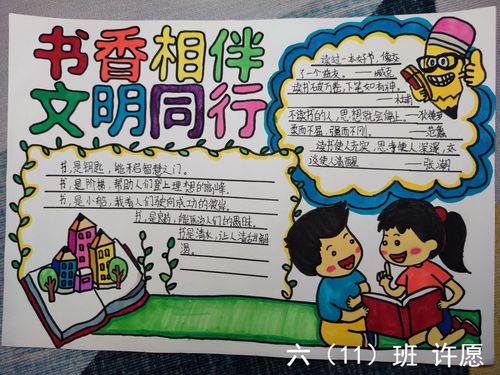 书香相伴
文明同行
读过一本好书，像交
了一个益友。——臧克
读书破万卷，下笔如有神。
——杜甫
不读书的人，思想就会停止。——狄德罗
柔而不屈，强而不刚。——范蠡
读书使人充实，思考使人深邃，交
谈使人清醒
书，是钥匙，能开启智慧之门。
书，是阶梯，帮助人们登上理想的高峰。
书，是小船，载着人们驶向成功的彼岸。
书，是良药，能医治人们的愚昧。
书是清水，让人
渴。
六（11）班 许愿